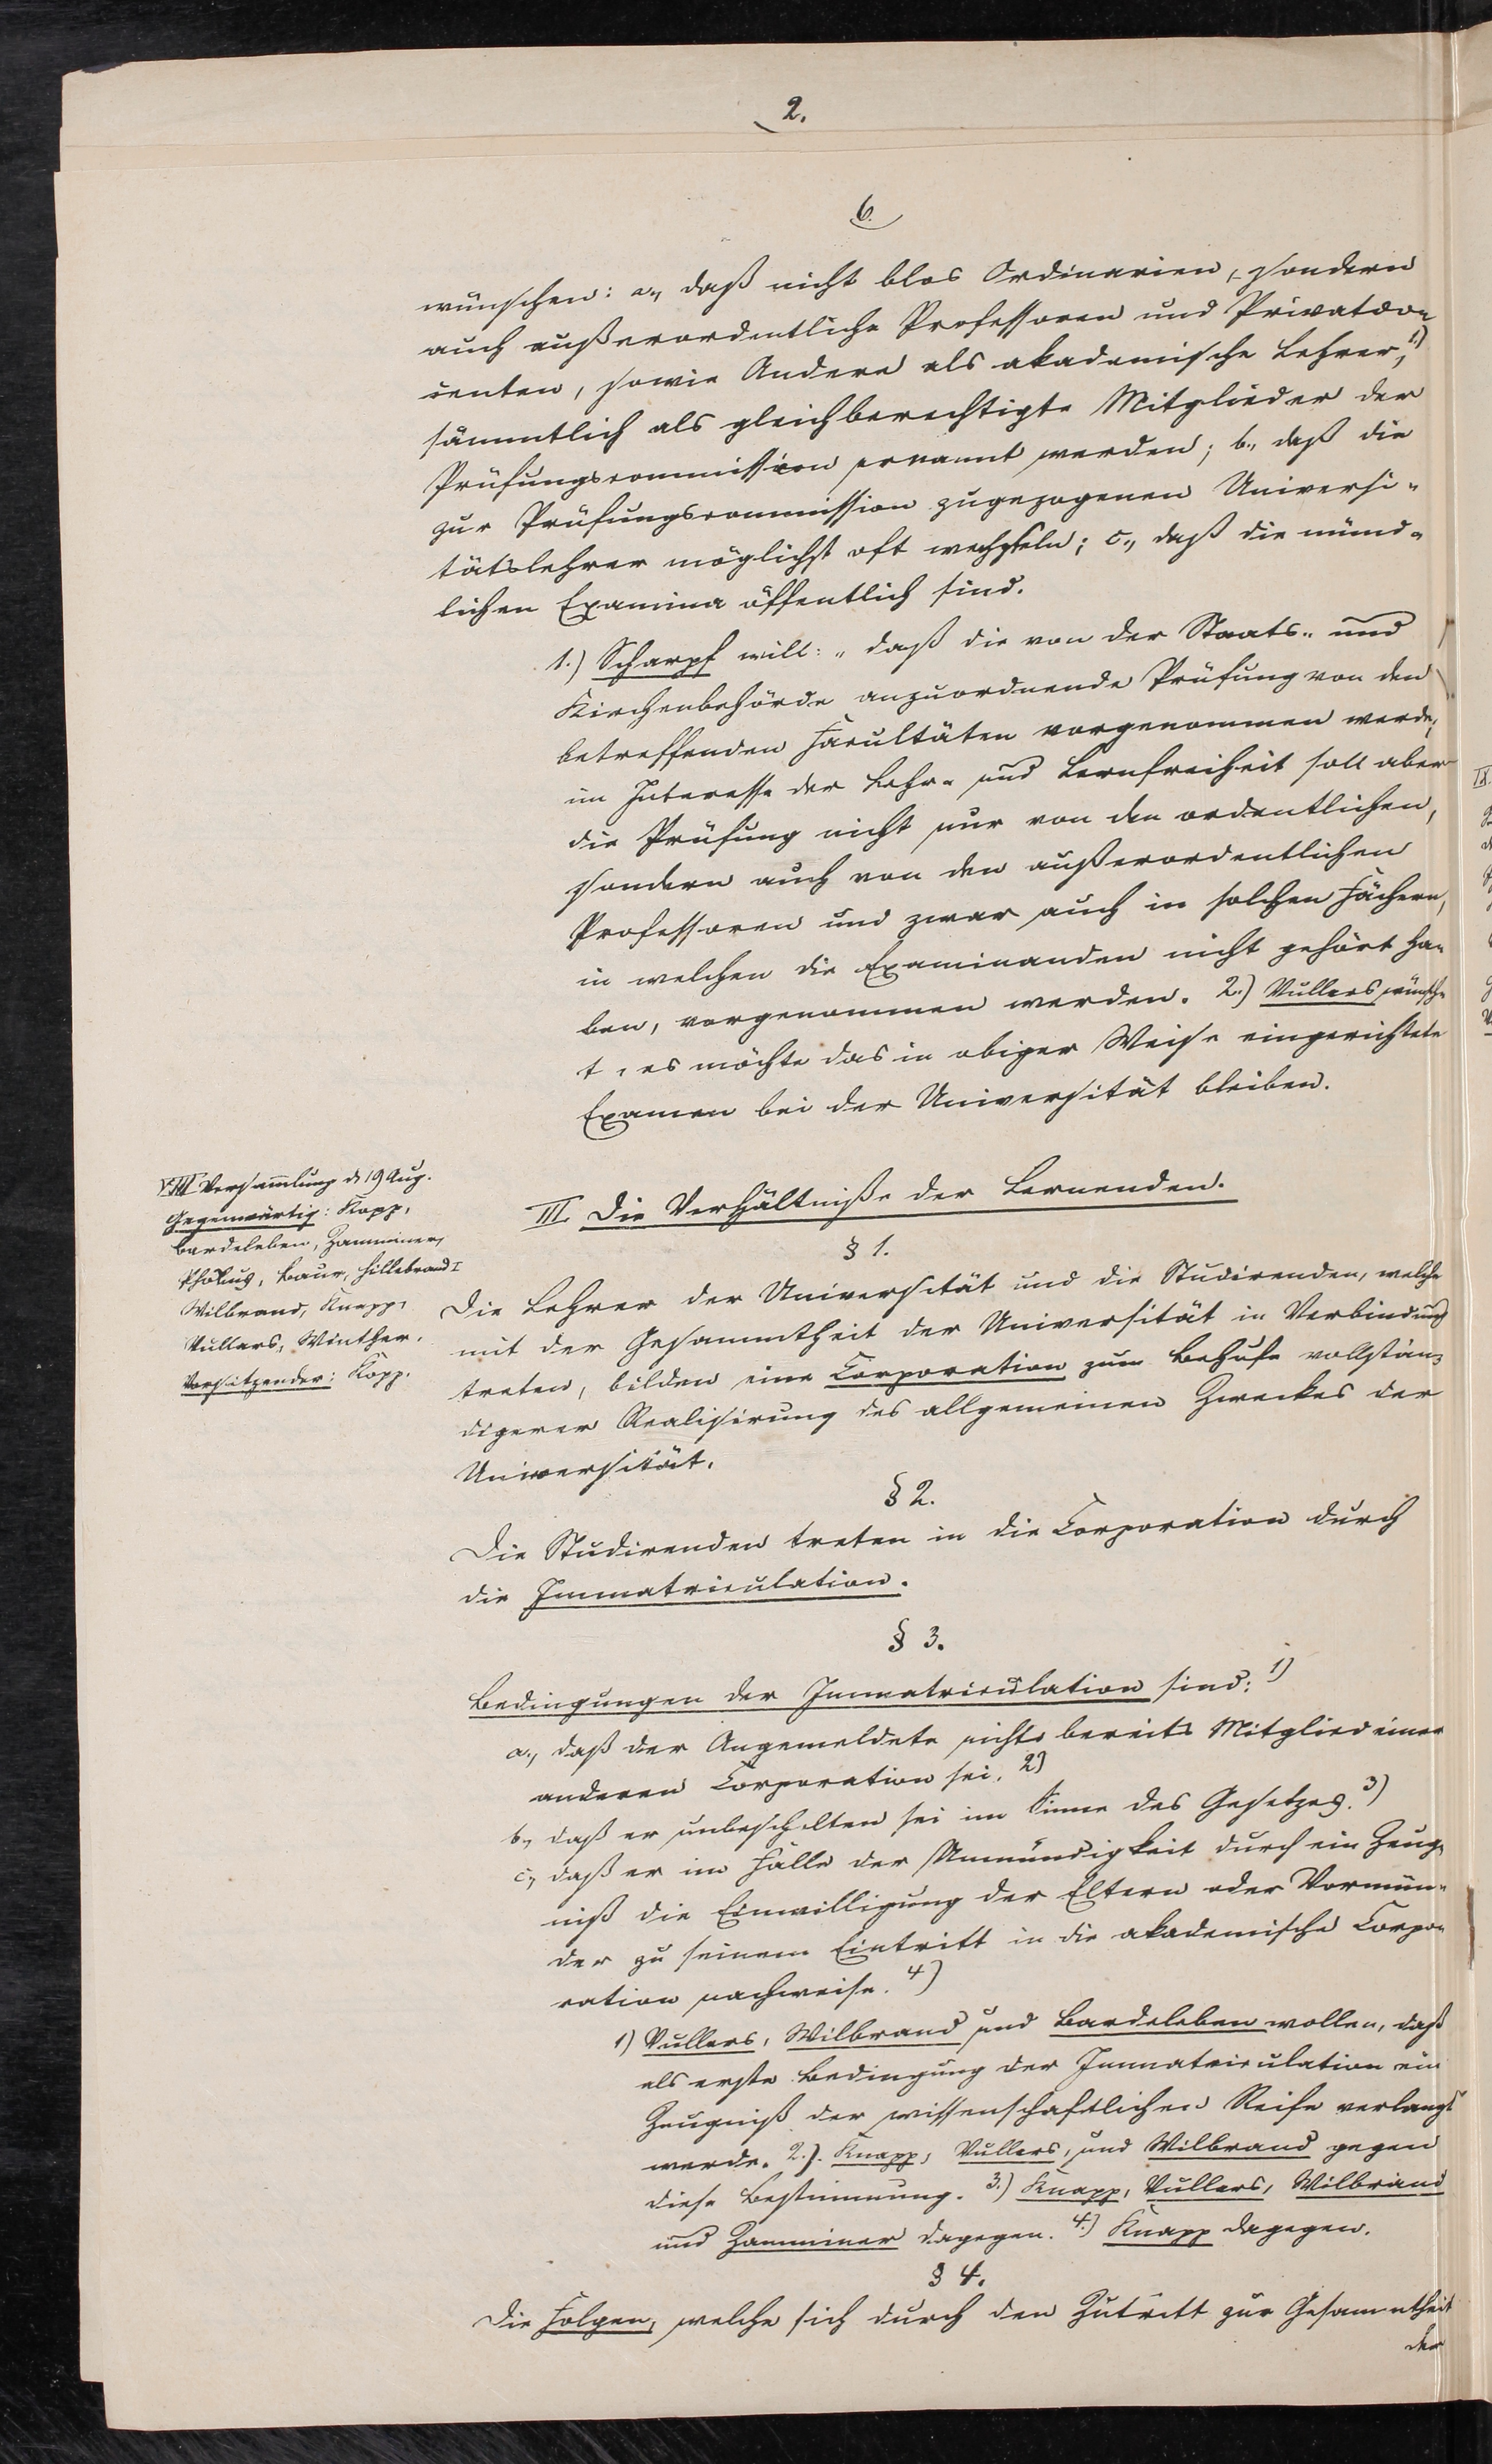 2.
6.
wünschen: a., daß nicht blos Ordinarien, sondern
auch außerordentliche Professoren und Privatdo-
centen, sowie Andere als akademische Lehrer, 1)
sämmtlich als gleichberechtigte Mitglieder der
Prüfungscommission ernannt werden; b., daß die
zur Prüfungscommission zugezogenen Universi-
tätslehrer möglichst oft wechseln; c., daß die münd-
lichen Examina öffentlich sind.
1.) Scharpf will: „daß die von der Staats- und
Kirchenbehörde anzuordnende Prüfung von den
betreffenden Facultäten vorgenommen werde;
im Interesse der Lehr- und Lernfreiheit soll aber
die Prüfung nicht nur von den ordentlichen,
sondern auch von den außerordentlichen
Professoren und zwar auch in solchen Fächern,
in welchen die Examinanden nicht gehört ha-
ben, vorgenommen werden. 2.) Vullers wünsch-
t, es möchte das in obiger Weise eingerichtete
Examen bei der Universität bleiben.
VIII Versammlung d 19 Aug.
Gegenwärtig: Kopp,
Bardeleben, Zamminer,
Phöbus, Baur, Hillebrand I
Wilbrand, Knapp,
Vullers, Winther.
Vorsitzender: Kopp.
III. Die Verhältniße der Lernenden.
§ 1.
Die Lehrer der Universität und die Studirenden, welche
mit der Gesammtheit der Universität in Verbindung
treten, bilden eine Corporation zum Behufe vollstän-
digerer Realisirung des allgemeinen Zweckes der
Universität.
§ 2.
Die Studirenden treten in die Corporation durch
die Immatriculation.
§ 3.
Bedingungen der Immatriculation sind: 1)
a., daß der Angemeldete nicht bereits Mitglied einer
anderen Corporation sei. 2)
b., daß er unbescholten sei im Sinne des Gesetzes. 3)
c., daß er im Falle der Unmündigkeit durch ein Zeug-
niß die Einwilligung der Eltern oder Vormün-
der zu seinem Eintritt in die akademische Corpo-
ration nachweise. 4)
1) Vullers, Wilbrand und Bardeleben wollen, daß
als erste Bedingung der Immatriculation ein
Zeugniß der wissenschaftlichen Reife verlangt
werde. 2.) Knapp, Vullers, und Wilbrand gegen
diese Bestimmung. 3.) Knapp, Vullers, Wilbrand
und Zamminer dagegen. 4.) Knapp dagegen.
§ 4.
Die Folgen, welche sich durch den Zutritt zur Gesammtheit
der